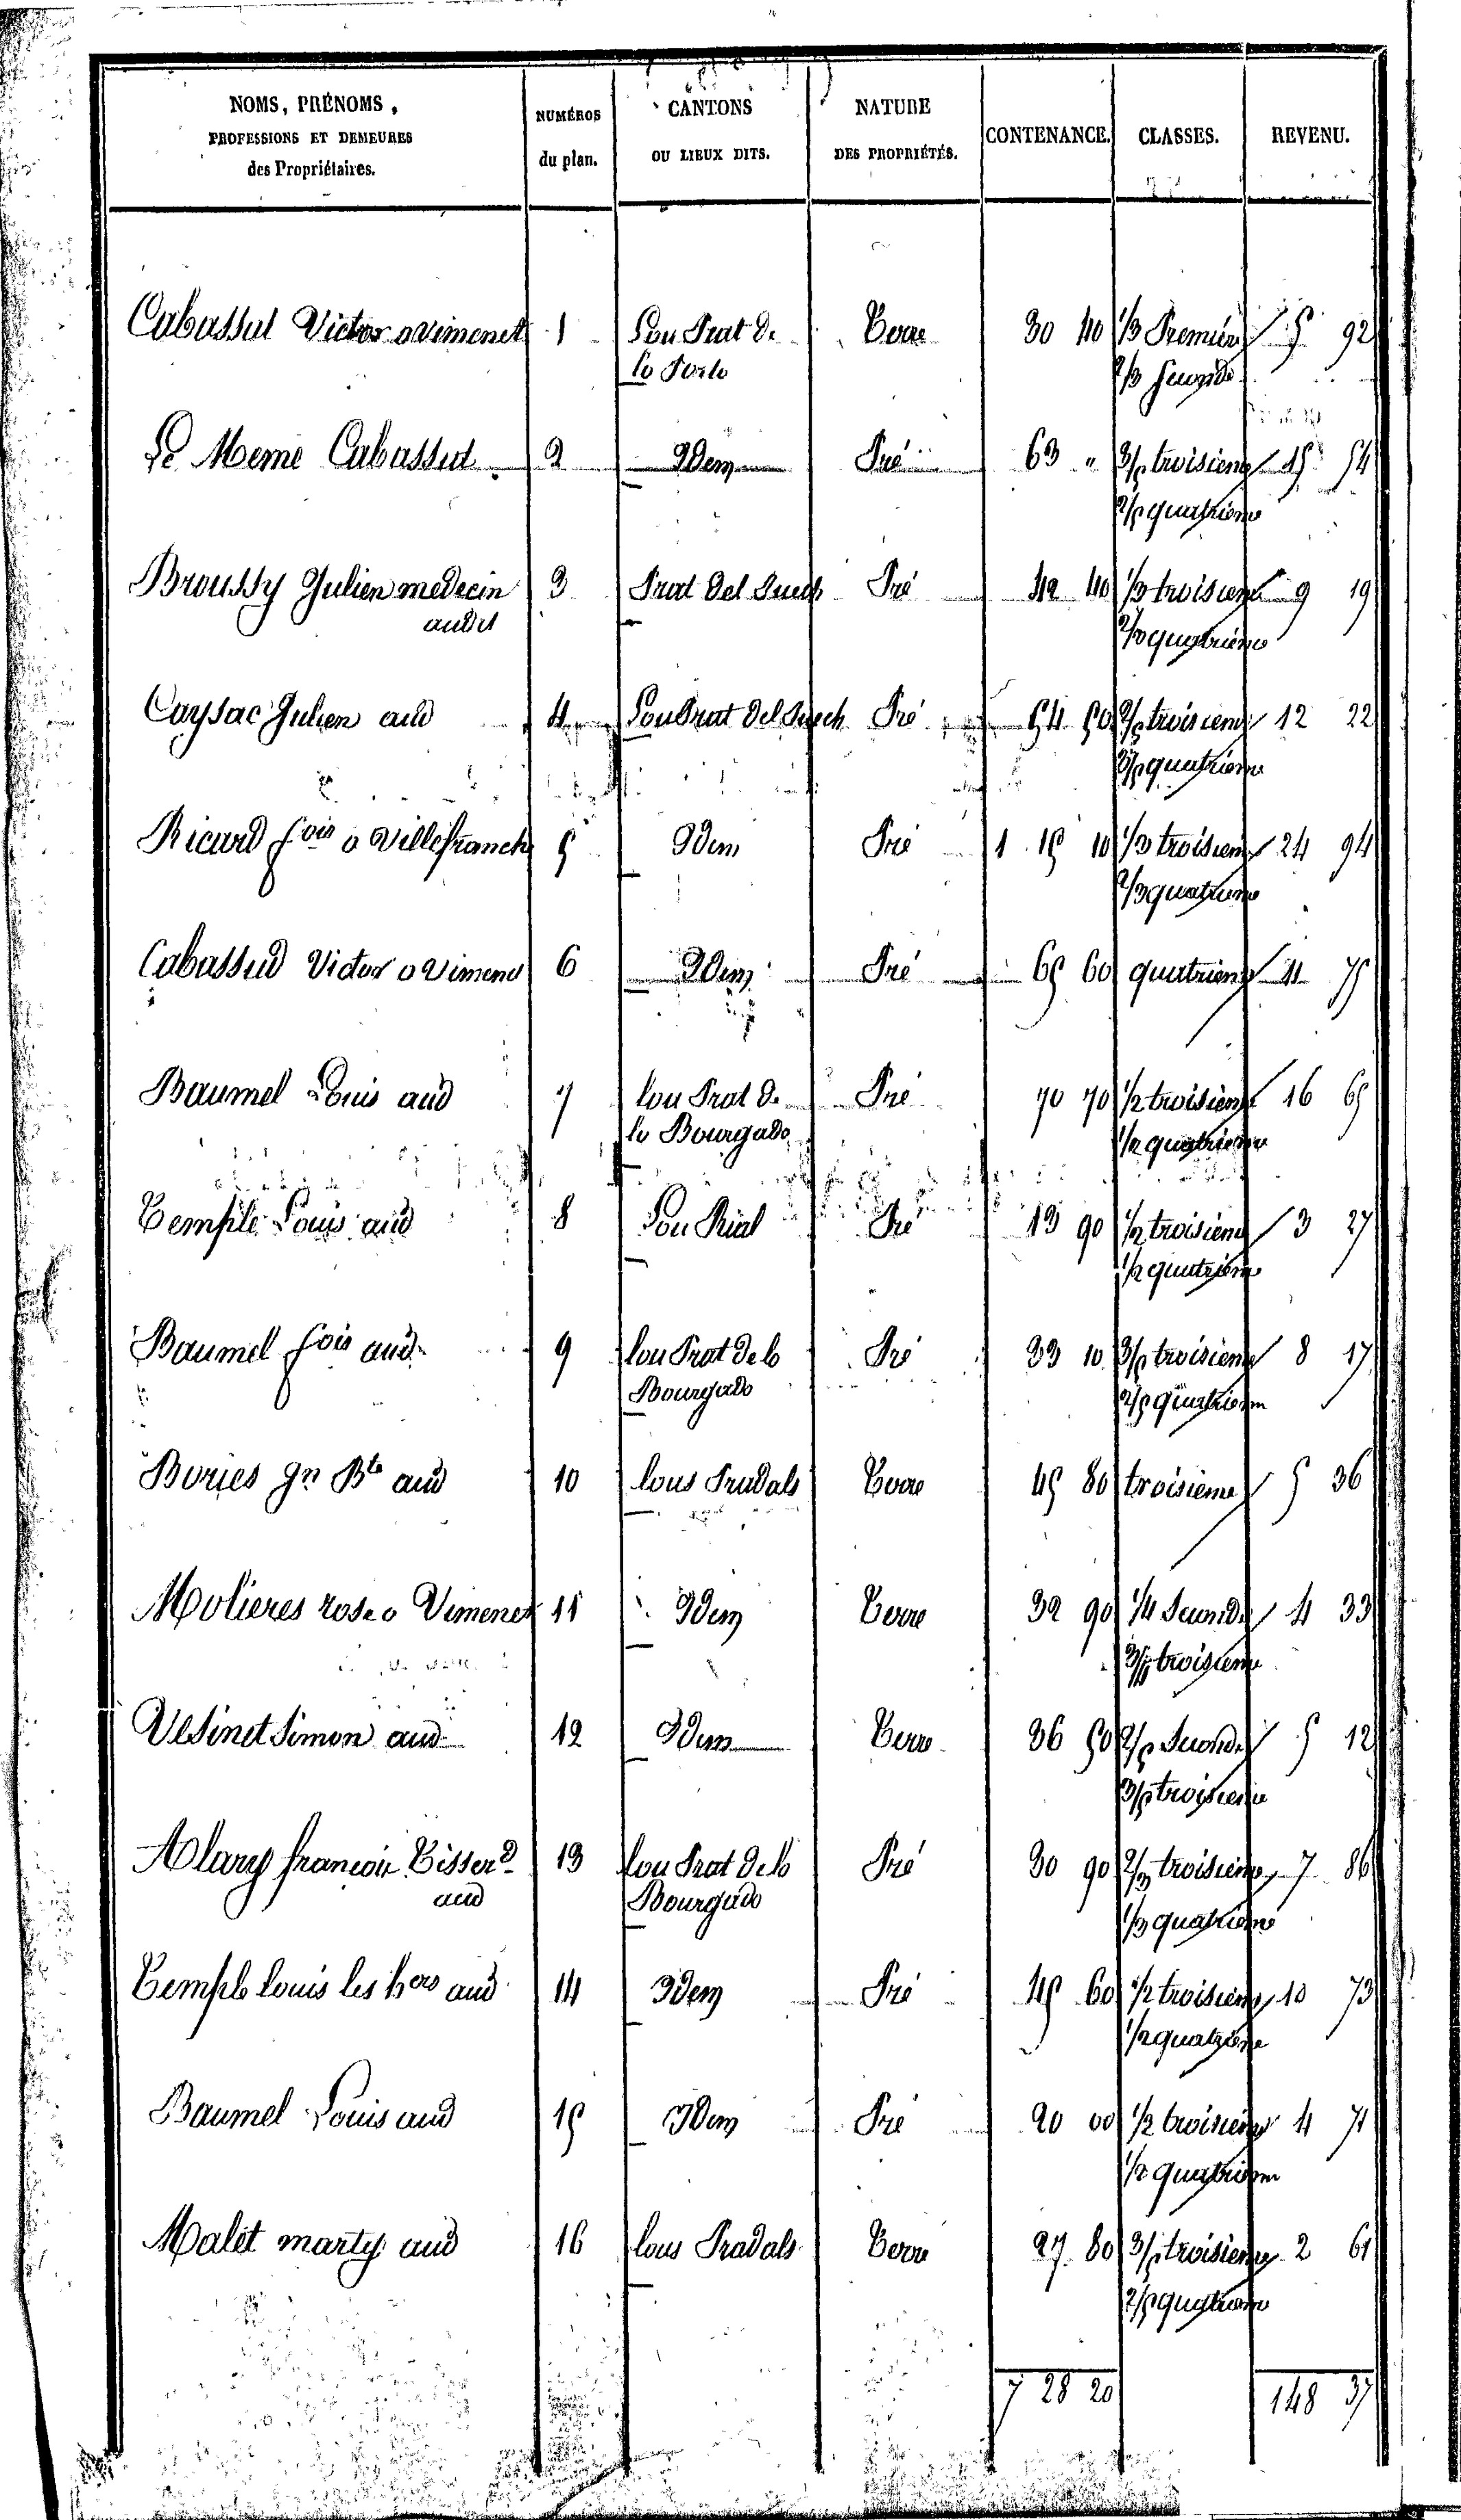 NOMS, PRÉNOMS, NUMÉROS CANTONS NATURE CONTENANCE. CLASSES. REVENU.
PROFESSIONS ET DEMEURES du plan. OU LIEUX DITS. DES PROPRIÉTÉS.
des Propriétaires.
Cabassut Victor o vimenet 1 Lou Prat de Terre 30 40 1/3 Premiere 5 92
lo Porto 2/3 Seconde
Le Meme Cabassut 2 Idem Pré 63 " 3/5 troisieme 15 54
2/5 quatrieme
Broussy Julien medecin 3 Prat del Suech Pré 42 40 1/3 troisieme 9 19
audit 2/3 quatrieme
Caysac Julien aud 4 Lou Prat del Suech Pré 54 50 2/5 troisieme 12 22
3/5 quatrieme
Ricard fois o Villefranche 5 Idem Pré 1 15 10 1/3 troisieme 24 94
2/3 quatrieme
Cabassud Victor o Vimene 6 Idem Pré 65 60 quatrieme 11 75
Baumel Louis aud 7 lou Prat de Pré 70 70 1/2 troisieme 16 65
lo Bourgado 1/2 quatrieme
Temple Louis aud 8 Lou Rial Pré 13 90 1/2 troisieme 3 27
1/2 quatrieme
Baumel fois aud 9 lou Prat de lo Pré 33 10 3/5 troisieme 8 17
Bourgado 2/5 quatriem
Bories Jn Bte aud 10 lous Pradals Terre 45 80 troisieme 5 36
Molieres rose o Vimenet 11 Idem Terre 32 90 1/4 Seconde 4 33
3/4 troisieme
Vesinet Simon aud 12 Idem Terre 36 50 2/5 Seconde 5 12
3/5 troisieme
Alary francois Tisserd 13 lou Prat de lo Pré 30 90 2/3 troisieme 7 86
aud Bourgado 1/3 quatrieme
Temple louis les hers aud 14 Idem Pré 45 60 1/2 troisieme 10 73
1/2 quatrieme
Baumel Louis aud 15 Idem Pré 20 00 1/2 troisieme 4 71
1/2 quatriem
Malet marty aud 16 lous Pradals Terre 27 80 3/5 troisieme 2 61
2/5 quatrieme
7 28 20 148 37